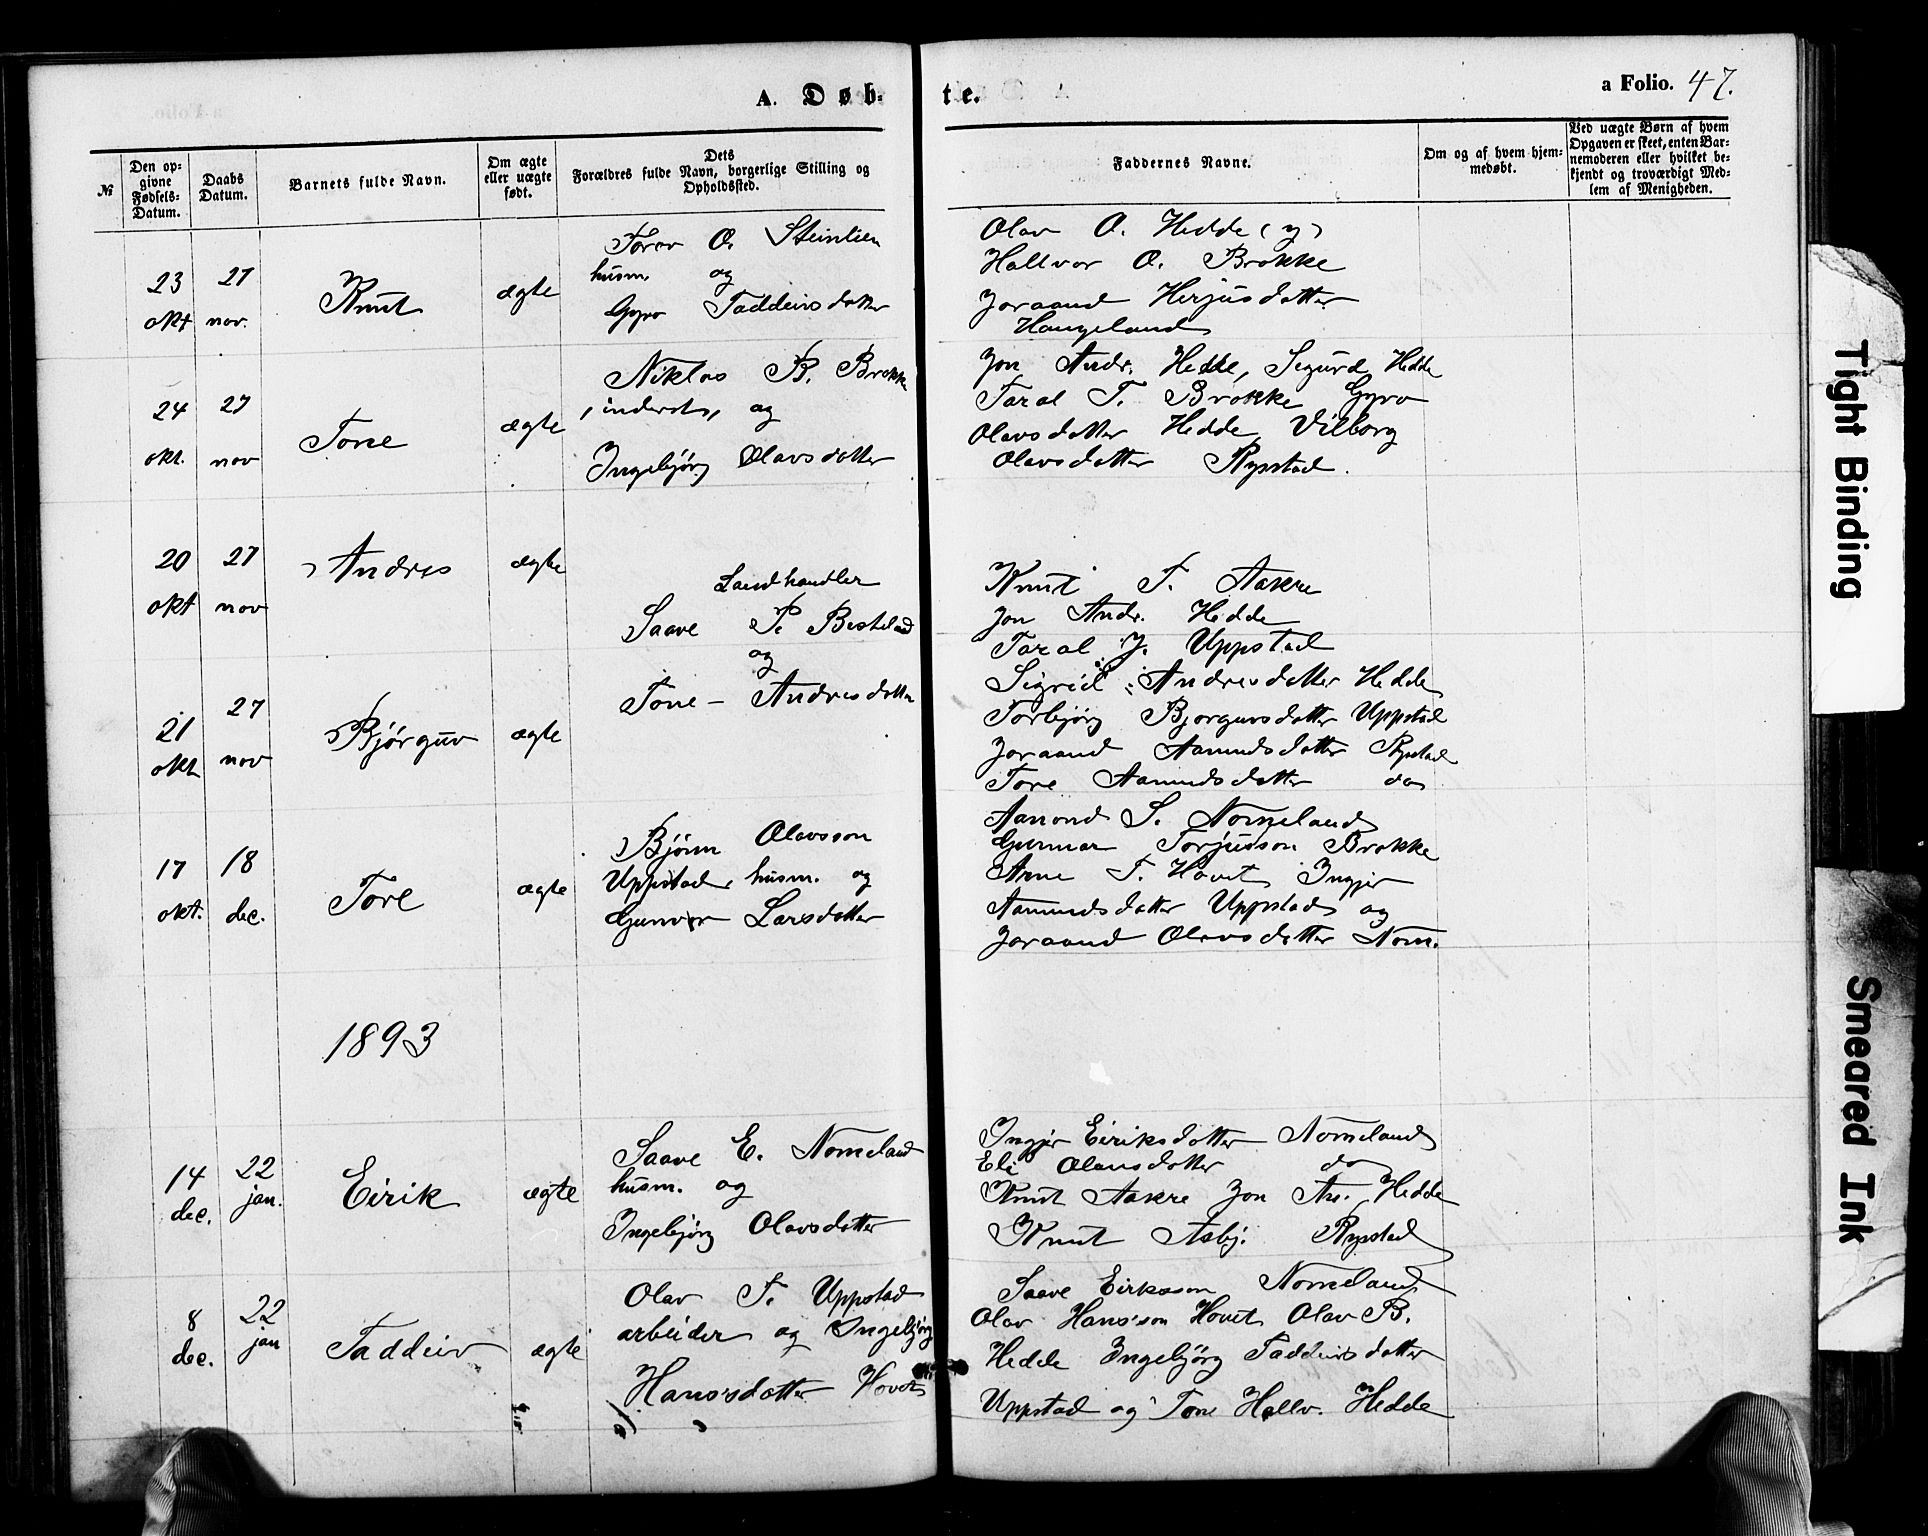 A. Døb-
te.
a Folio. 47.
№
Den op-
givne
Fødsels-
Datum.
Daabs
Datum.
Barnets fulde Navn.
Om ægte
eller uægte
født.
Dets
Forældres fulde Navn, borgerlige Stilling og
Opholdssted.
Faddernes Navne.
Om og af hvem hjem-
medøbt.
Ved uægte Børn af hvem
Opgaven er skeet, enten Bar-
nemoderen eller hvilket be-
kjendt og troværdigt Med-
lem af Menigheden.
23
okt
27
nov.
Knut
ægte
Torov O. Steinlien
husm. og
Gyro Taddeivsdotter
Olav O. Hedde (y)
Hallvor O. Brokke
Joraand Herjusdotter
Haugeland
24
okt.
27
nov
Tone
ægte
Niklos B. Brokke
, inderst, og
Ingebjørg Olavsdotter
Jon Andr. Hedde, Sigurd Hedde
Tarol T. Brokke Gyro
Olavsdotter Hedde Vilborg
Olavsdotter Rystad.
20
okt
27
nov
Andres
ægte
21
okt
27
nov
Bjørguv
ægte
Landhandler
Saave P. Besteland
og
Tone - Andresdotter
Knut T. Aakre
Jon Andr. Hedde
Tarol J. Uppstad
Sigrid Andresdotter Hedde
Torbjørg Bjorguvsdotter Uppstad
Joraand Aamundsdotter Rystad
Tore Aamundsdotter do
17
okt.
18
dec.
Tore
ægte
Bjørn Olavsson
Uppstad, husm. og
Gunvor Larsdotter
Aanond S. Nomeland
Gunnar Torjusson Brokke
Arne T. Hovet Ingjer
Aamundsdotter Uppstad og
Joraand Olavsdotter Nom.
1893
14
dec.
22
jan.
Eirik
ægte
Saave E. Nomeland
husm. og
Ingebjørg Olavsdotter
Ingjer Eiriksdotter Nomeland
Eli Olavsdotter do
Knut Aakre Jon An. Hedde
Knut Asbj. Rystad
8
dec.
22
jan
Taddeiv
ægte
Olav T. Uppstad
arbeider og Ingebjørg
Hans'sdotter Hovet
Saave Eirksson Nomeland
Olav Hans'son Hovet Olav B.
Hedde Ingebjørg Taddeivsdotter
Uppstad og Tone Hallv. Hedde
Tight Binding
Smeared Ink